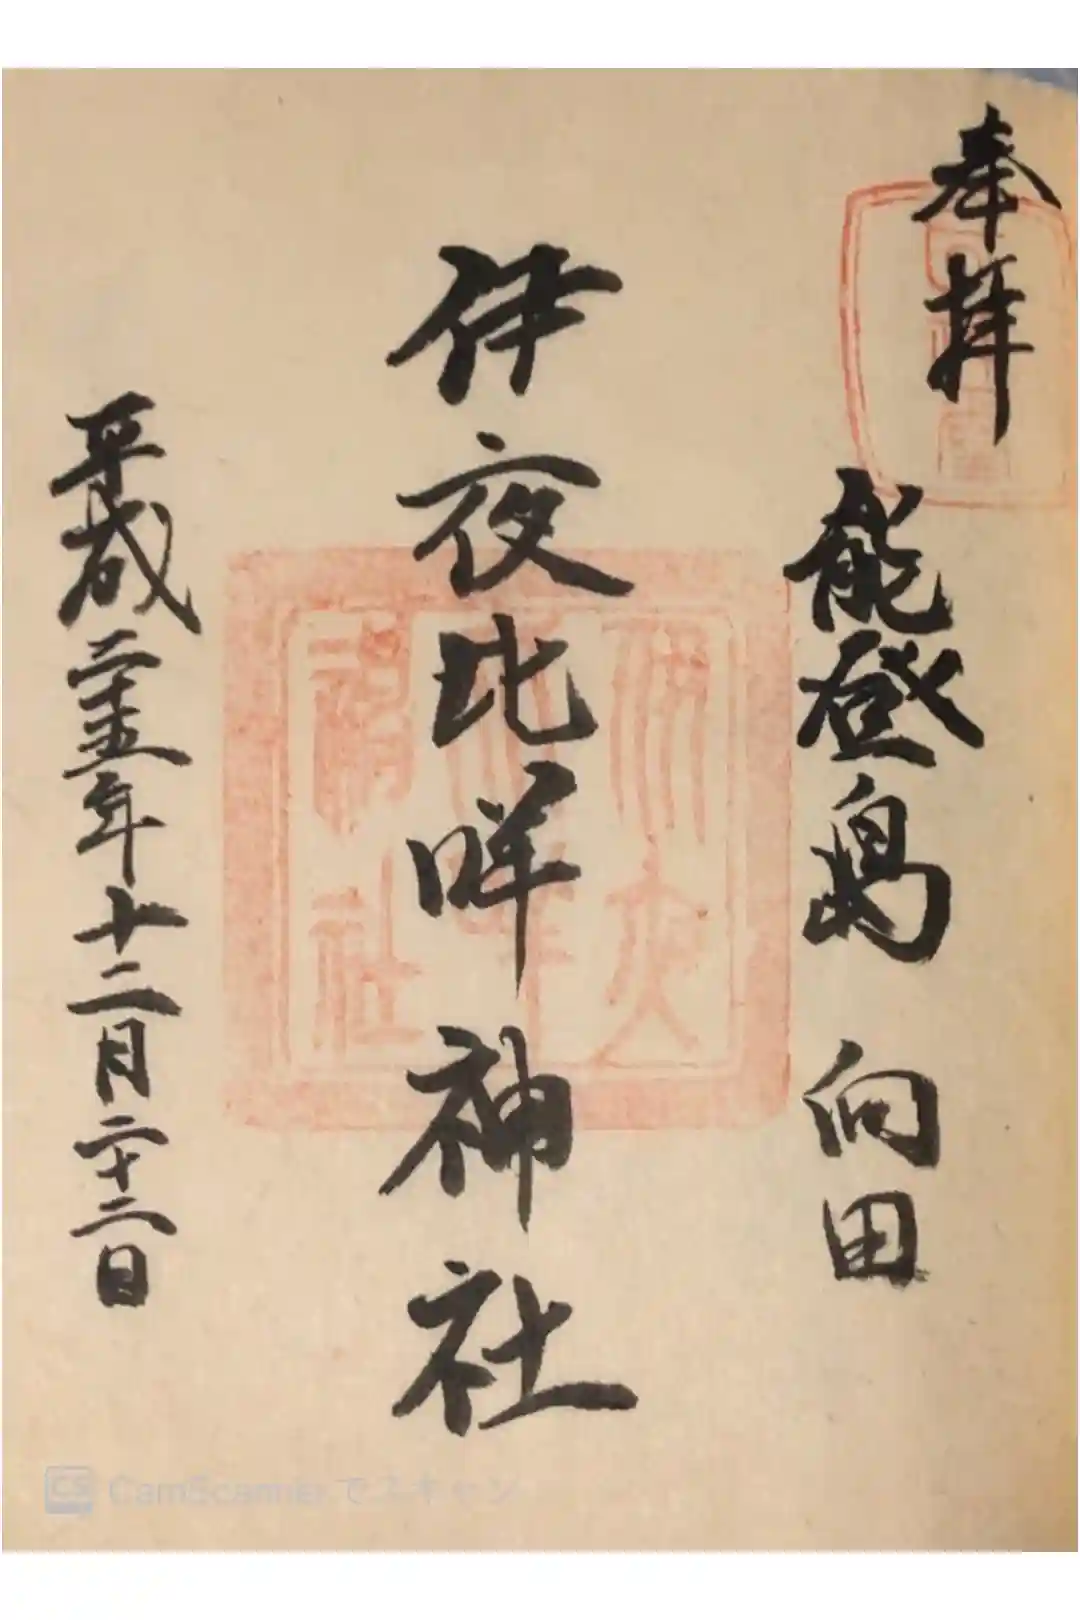 奉拝
能登島 向田
伊夜比咩神社
平成二十五年十二月二十二日
伊夜
神社
CS CamScannerでスキャン